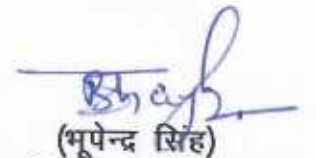 (भूपेन्द्र सिंह)